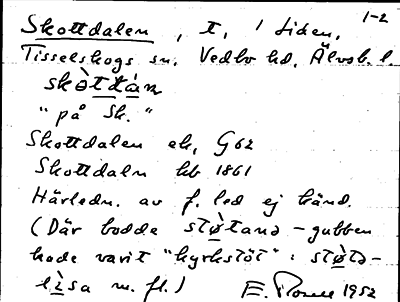 1-2
Skottdalen, t, 1 Liden,
Tisselskogs sn. Vedbo hd. Älvsb. l.
skòttàn
"på Sk."
Skottdalen ek, G 62
Skottdaln kb 1861
Härledn. av f. led ej känd.
(Där bodde støtana-gubben
hade varit "kyrkstöt" : støtə-
lisa m. fl.)
E. 1952